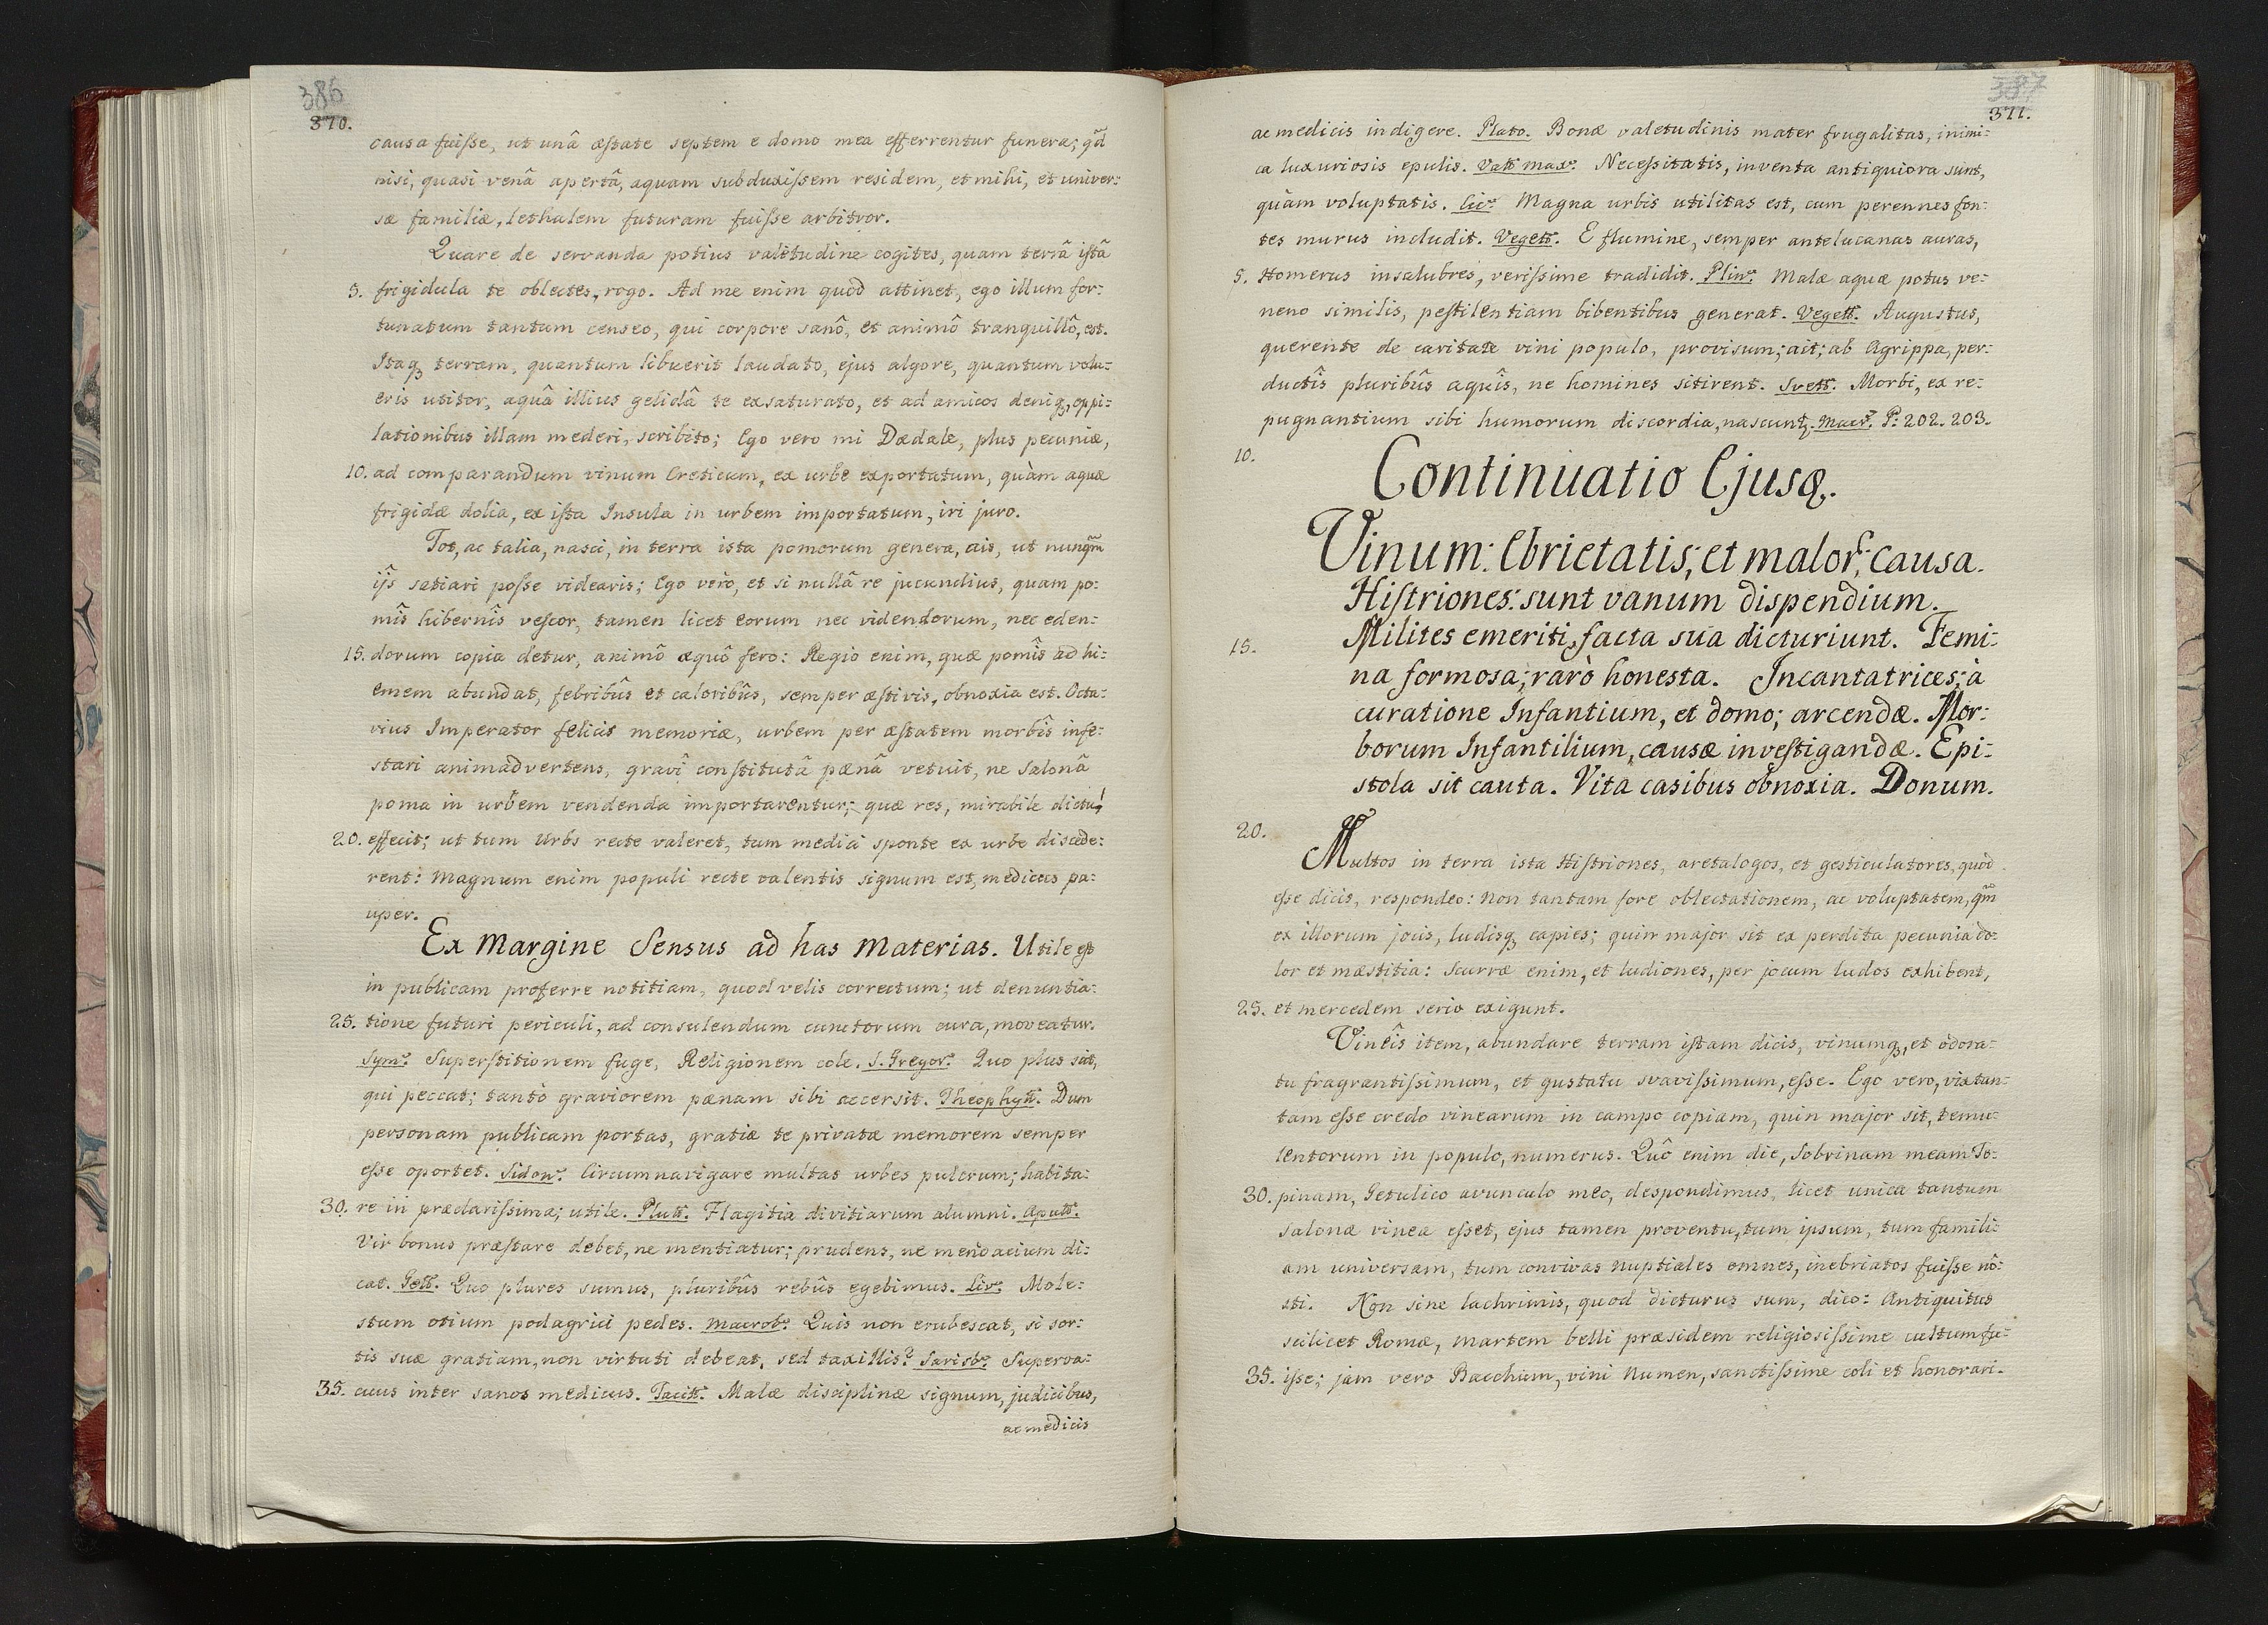 386
370.
causa fuiſse, ut unâ æſtate septem e domo mea efferrentur funera; qd̃
nisi, quasi venâ apertâ, aquam subduxiſsem residem, et mihi, et univer:
sæ familiæ, lethalem futuram fuiſse arbitror.
Quare de servanda potius valetudine cogites, quam terrâ iſtâ
5. frigidula te oblectes, rogo. Ad me enim quod attinet, ego illum for:
tunatum tantum censeo, qui corpore sanô, et animô tranquillô, est.
Itaq; terram, quantum libuerit laudato, ejus algore, quantum volu:
eris utitor, aquâ illius gelidâ te exsaturato, et ad amicos deniq;, oppi:
lationibus illam mederi, scribito; Ego vero mi Dædale, plus pecuniæ,
10. ad comparandum vinum Creticum, ex urbe exportatum, quàm aquæ
frigidæ dolia, ex iſta Insula in urbem importatum, iri juro.
Tot, ac talia, nasci, in terra ista pomorum genera, ais, ut nunqm̃
ijs satiari poſse videaris; Ego verò, et si nullâ re jucundius, quam po:
mîs hibernîs veſcor, tamen licet eorum nec videndorum, nec eden:
15. dorum copia detur, animô æquô fero: Regio enim, quæ pomîs ad hi:
emem abundat, febribûs et caloribûs, semper æſtivis, obnoxia est. Octa:
vius Imperator felicis memoriæ, urbem per æſtatem morbîs infe:
stari animadvertens, gravî conſtitutâ pænâ vetuit, ne Salonâ
poma in urbem vendenda importarentur; quæ res, mirabile dictu!
20. effecit; ut tum Urbs recte valeret, tum medici sponte ex urbe discede:
rent: Magnum enim populi recte valentis signum est, medicus pa:
uper.
Ex Margine Sensus ad has Materias. Utile eſt
in publicam proferre notitiam, quod velis correctum; ut denuntia:
25. tione futuri periculi, ad consulendum cunctorum cura, moveatur.
Sym: Superſtitionem fuge, Religionem cole. S. Gregor: Quo plus scit,
qui peccat; tantò graviorem pænam sibi accersit. Theophyll. Dum
personam publicam portas, gratiæ te privatæ memorem semper
eſse oportet. Sidon: Circumnavigare multas urbes pulcrum; habita:
30. re in præclariſsima; utile. Plutt. Flagitia divitiarum alumni. Apull.
Vir bonus præſtare debet, ne mentiatur; prudens, ne mendacium di:
cat. Gell. Quo plures sumus, pluribûs rebûs egebimus. Liv: Mole:
stum otium podagrici pedes. Macrob: Quis non erubescat, si sor:
tis suæ gratiam, non virtuti debeat, sed taxillis? Sarisb: Superva:
35. cuus inter sanos medicus. Tacitt. Malæ disciplinæ signum, judicibus,
ac medicis
387
371.
ac medicis indigere. Plato. Bonæ valetudinis mater frugalitas, inimi:
ca luxuriosis epulis. Vall max: Neceſsitatis, inventa antiquiora sunt,
quàm voluptatis. Cic: Magna urbis utilitas est, cum perennes fon:
tes murus includit. Vegett. E flumine, semper antelucanas auras,
5. Homerus insalubres, veriſsime tradidit. Plin: Malæ aquæ potus ve:
neno similis, peſtilentiam bibentibus generat. Vegett. Augustus,
querente de caritate vini populo, provisum; ait; ab Agrippa, per:
ductîs pluribûs aquîs, ne homines sitirent. Svett. Morbi, ex re:
pugnantium sibi humorum discordia, nascunt;. Macr: P: 202. 203.
10.
Continuatio Ejusq;.
Vinum: Ebrietatis, et malor; causa.
Hiſtriones: sunt vanum dispendium.
15. Milites emeriti, facta sua dicturiunt. Femi:
na formosa; rarò honesta. Incantatrices; à
curatione Infantium, et domo; arcendæ. Mor:
borum Infantilium, causæ inveſtigandæ. Epi:
stola sit cauta. Vita casibus obnoxia. Donum.
20.
Multos in terra ista Hiſtriones, aretalogos, et gesticulatores, quòd
eſse dicis, respondeo: Non tantam fore oblectationem, ac voluptatem, qm̃
ex illorum jocis, ludisq; capies; quin major sit ex perdita pecunia do:
lor et mæstitia: Scurræ enim, et ludiones, per jocum ludos exhibent,
25. et mercedem serio exigunt.
Vineîs item, abundare terram iſtam dicis, vinumq;, et odora:
tu fragrantiſsimum, et gustatu svaviſsimum, eſse. Ego vero, vix tan:
tam eſse credo vinearum in campo copiam, quin major sit, temu:
lentorum in populo, numerus. Quô enim die, Sobrinam meam To:
30. pinam, Getulico avunculo meo, despondimus, licet unica tantum
Salonæ vinea eſset, ejus tamen proventu, tum ipsum, tum famili:
am universam, tum convivas nuptiales omnes, inebriatos fuiſse no:
sti. Non sine lachrimis, quod dicturus sum, dico: Antiquitus
scilicet Romæ, Martem belli præsidem religiosiſsime cultum fu:
35. iſse; jam vero Bacchum, vini Numen, sanctiſsime coli et honorari.